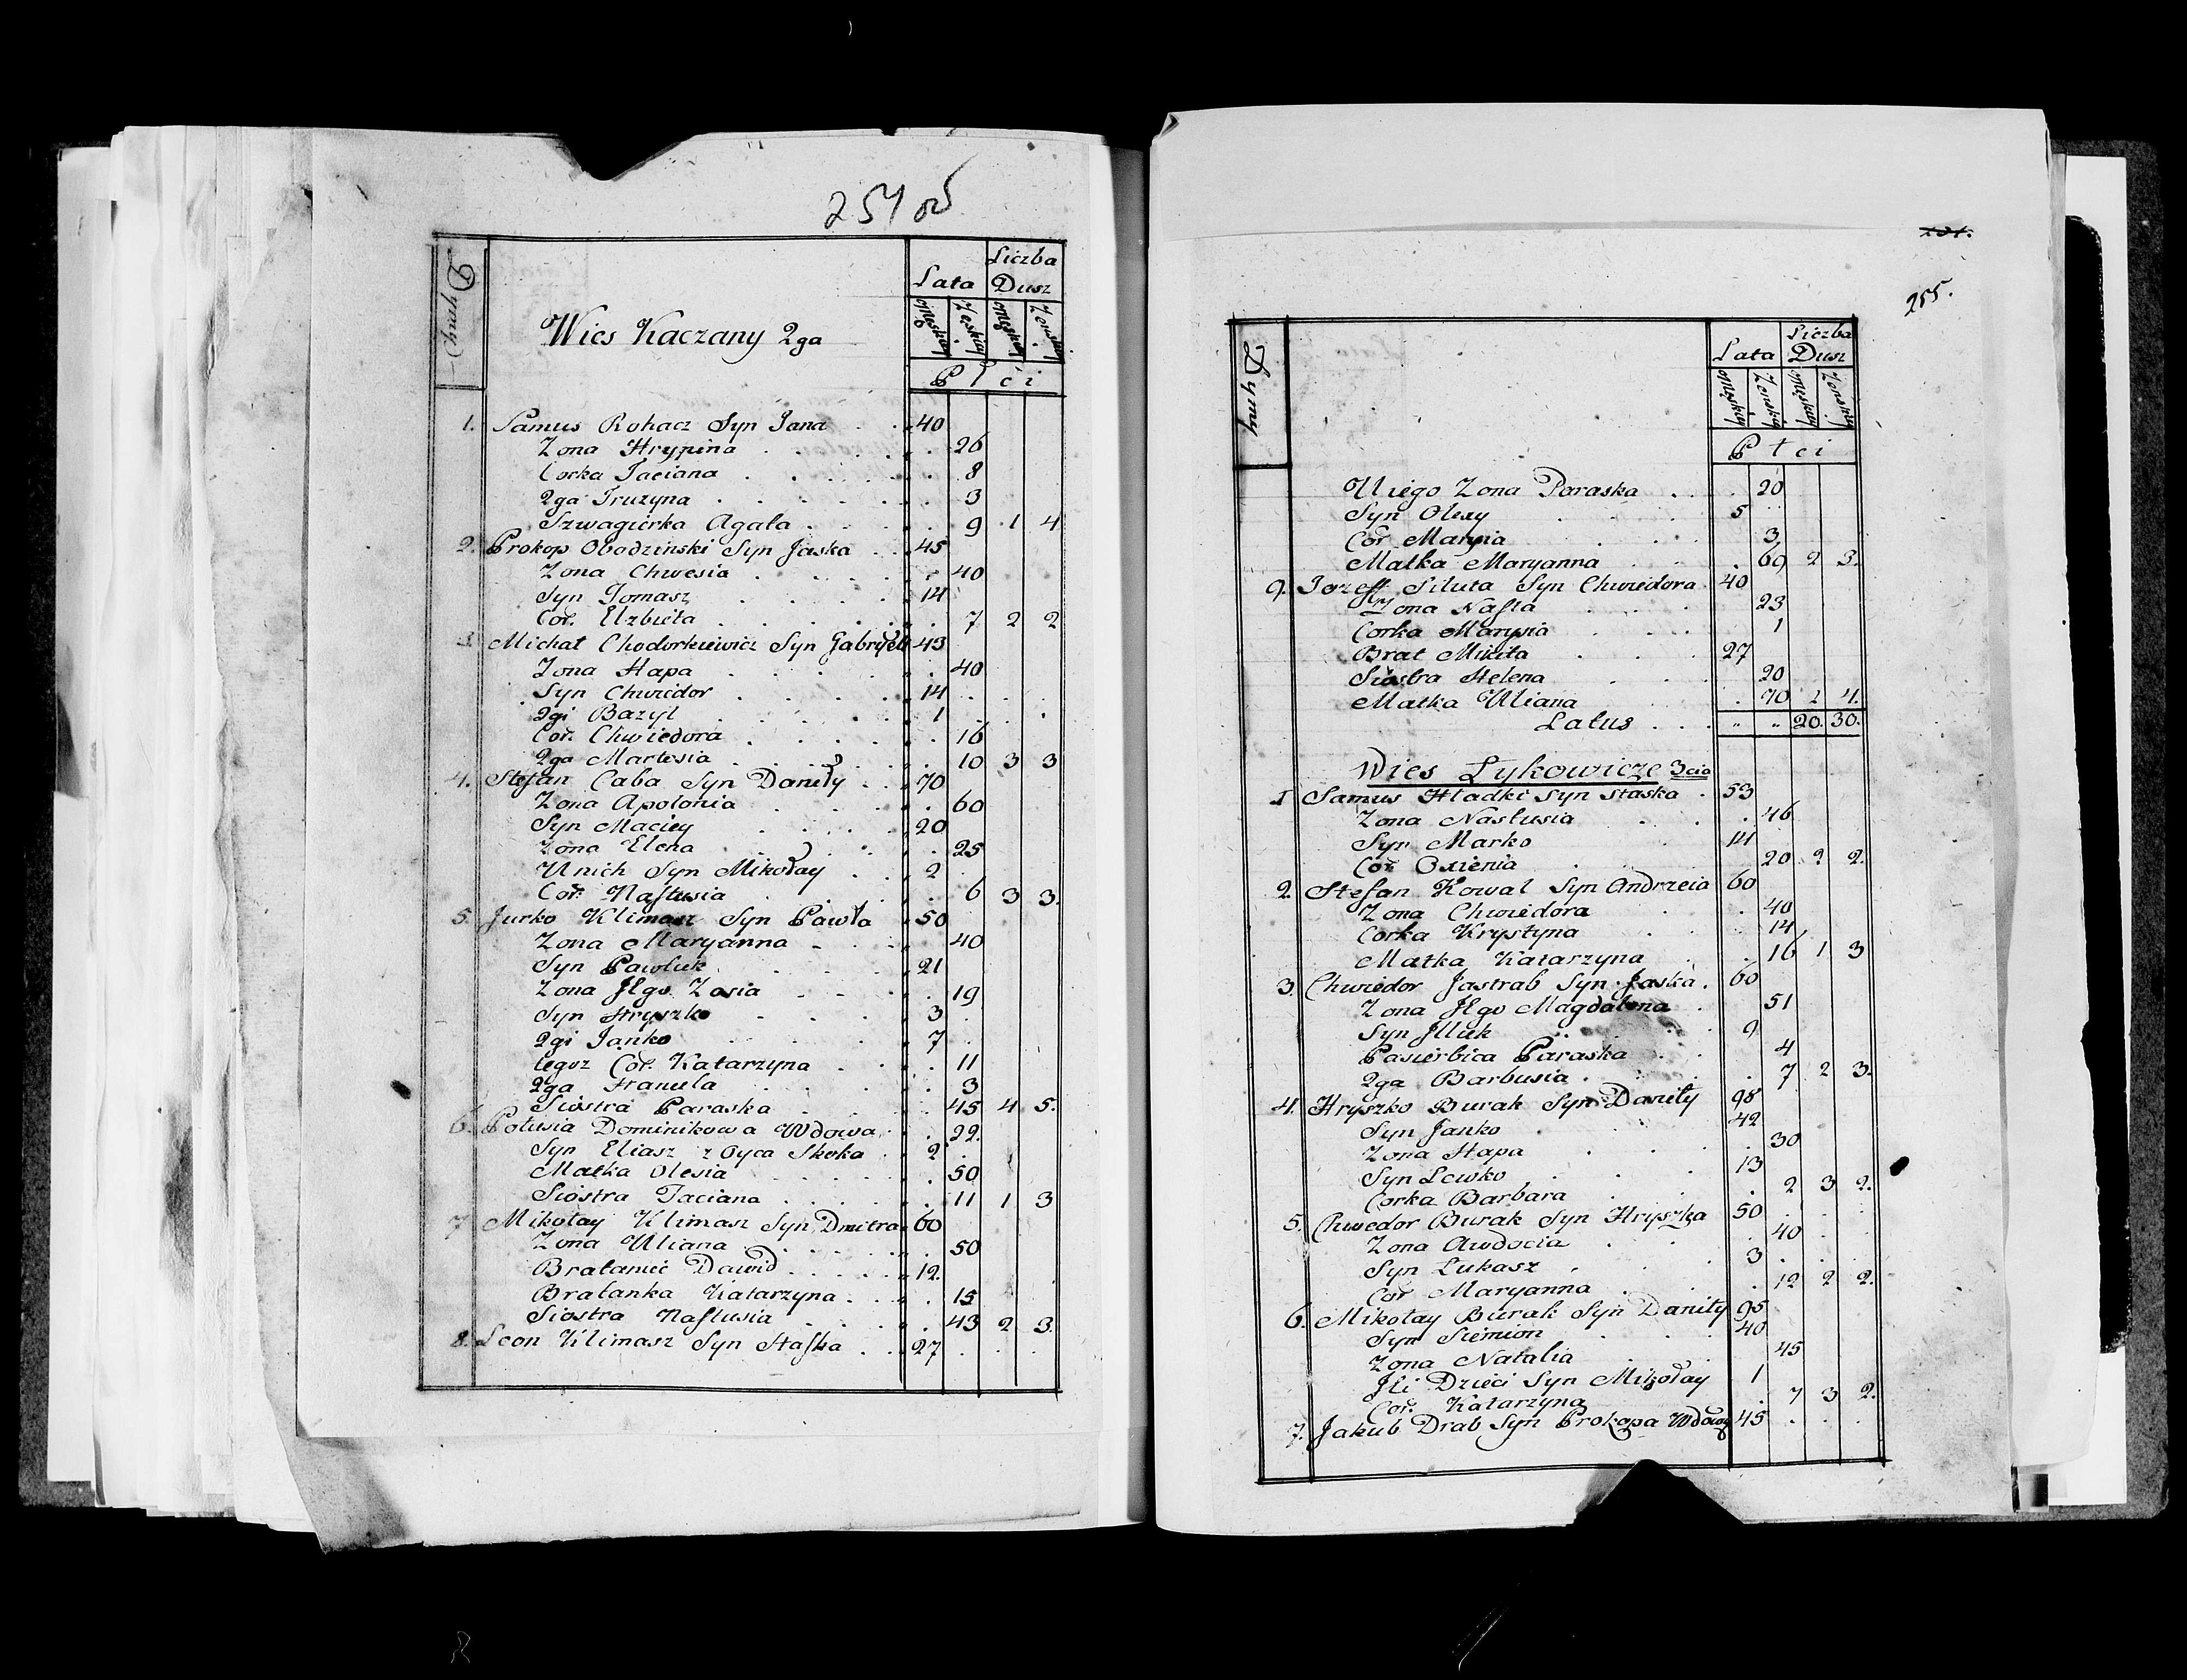 254 об
Dymy
Chrah
Lata
Liczba Dusz
Męskiey Żeńskiey Męskiey Żeńskiey
Płci
Wies Kaczany 2ga
1. Samus Rohacz Syn Jana 40
Zona Hrypina 26
Corka Taciana 8
2ga Truzyna 3
Szwagierka Agata 9 1 4
2. Prokop Obodzinski Syn Jaska 45
Zona Chwesia 40
Syn Tomasz 14
Cor. Elzbieta 7 2 2
3. Michał Chodorkiewicz Syn Gabryela 43
Zona Hapa 40
Syn Chwiedor 14
2gi Bazyl 1
Cor. Chwiedora 16
2ga Martesia 10 3 3
4. Stefan Caba Syn Daniły 70
Zona Apolonia 60
Syn Maciey 20
Zona Elena 25
U nich Syn Mikołay 2
Cor. Nastusia 6 3 3.
5. Jurko Klimasz Syn Pawła 50
Zona Maryanna 40
Syn Pawluk 21
Zona Jego Zosia 19
Syn Hryszko 3
2gi Janko 7
tegoz Cor. Katarzyna 11
2ga Franuela 3
Siostra Paraska 45 4 5.
6. Polusia Dominikowa Wdowa 22.
Syn Eliasz z Oyca Skoka 2
Matka Olesia 50
Siostra Taciana 11 1 3
7 Mikołay Klimasz Syn Dmitra 60
Zona Uliana 50
Bratanic Dawid 12.
Bratanka Katarzyna 15
Siostra Nastusia 43 2 3.
8. Leon Klimasz Syn Staska 27
101.
255.
Dymy
Lata
Liczba Dusz
Męskiey Żeńskiey Męskiey Żeńskiey
Płci
U iego Zona Paraska 20
Syn Olexy 5
Cor. Marysia 3
Matka Maryanna 69 2 3.
9. Jozeff Siluta Syn Chwiedora 40
Zona Nasta 23
Corka Marysia 1
Brat Mikita 27
Siostra Helena 20
Matka Uliana 70 2 4.
Latus " " 20. 30.
Wies Łykowicze 3cia
1 Samus Hladki Syn Staska 53
Zona Nastusia 46
Syn Marko 14
Cor. Oxienia 20 2 2.
2 Stefan Kowal Syn Andrzeia 60
Zona Chwiedora 40
Corka Krystyna 14
Matka Katarzyna 16 1 3
3. Chwiedor Jastrab Syn Jaska 60
Zona Jego Magdalena 51
Syn Illuk 9
Pasierbica Paraska 4
2ga Barbusia 7 2 3.
4. Hryszko Burak Syn Daniły 98
Syn Janko 42
Zona Hapa 30
Syn Lewko 13
Corka Barbara 2 3 2.
5. Chwedor Burak Syn Hryszka 50
Zona Awdocia 40
Syn Łukasz 3
Cor. Maryanna 12 2 2.
6. Mikołay Burak Syn Daniły 95
Syn Siemion 40
Zona Natalia 45
Jli Dzieci Syn Mikołay 1
Cor. Katarzyna 7 3 2.
7. Jakub Drab Syn Prokopa Wdowy 45